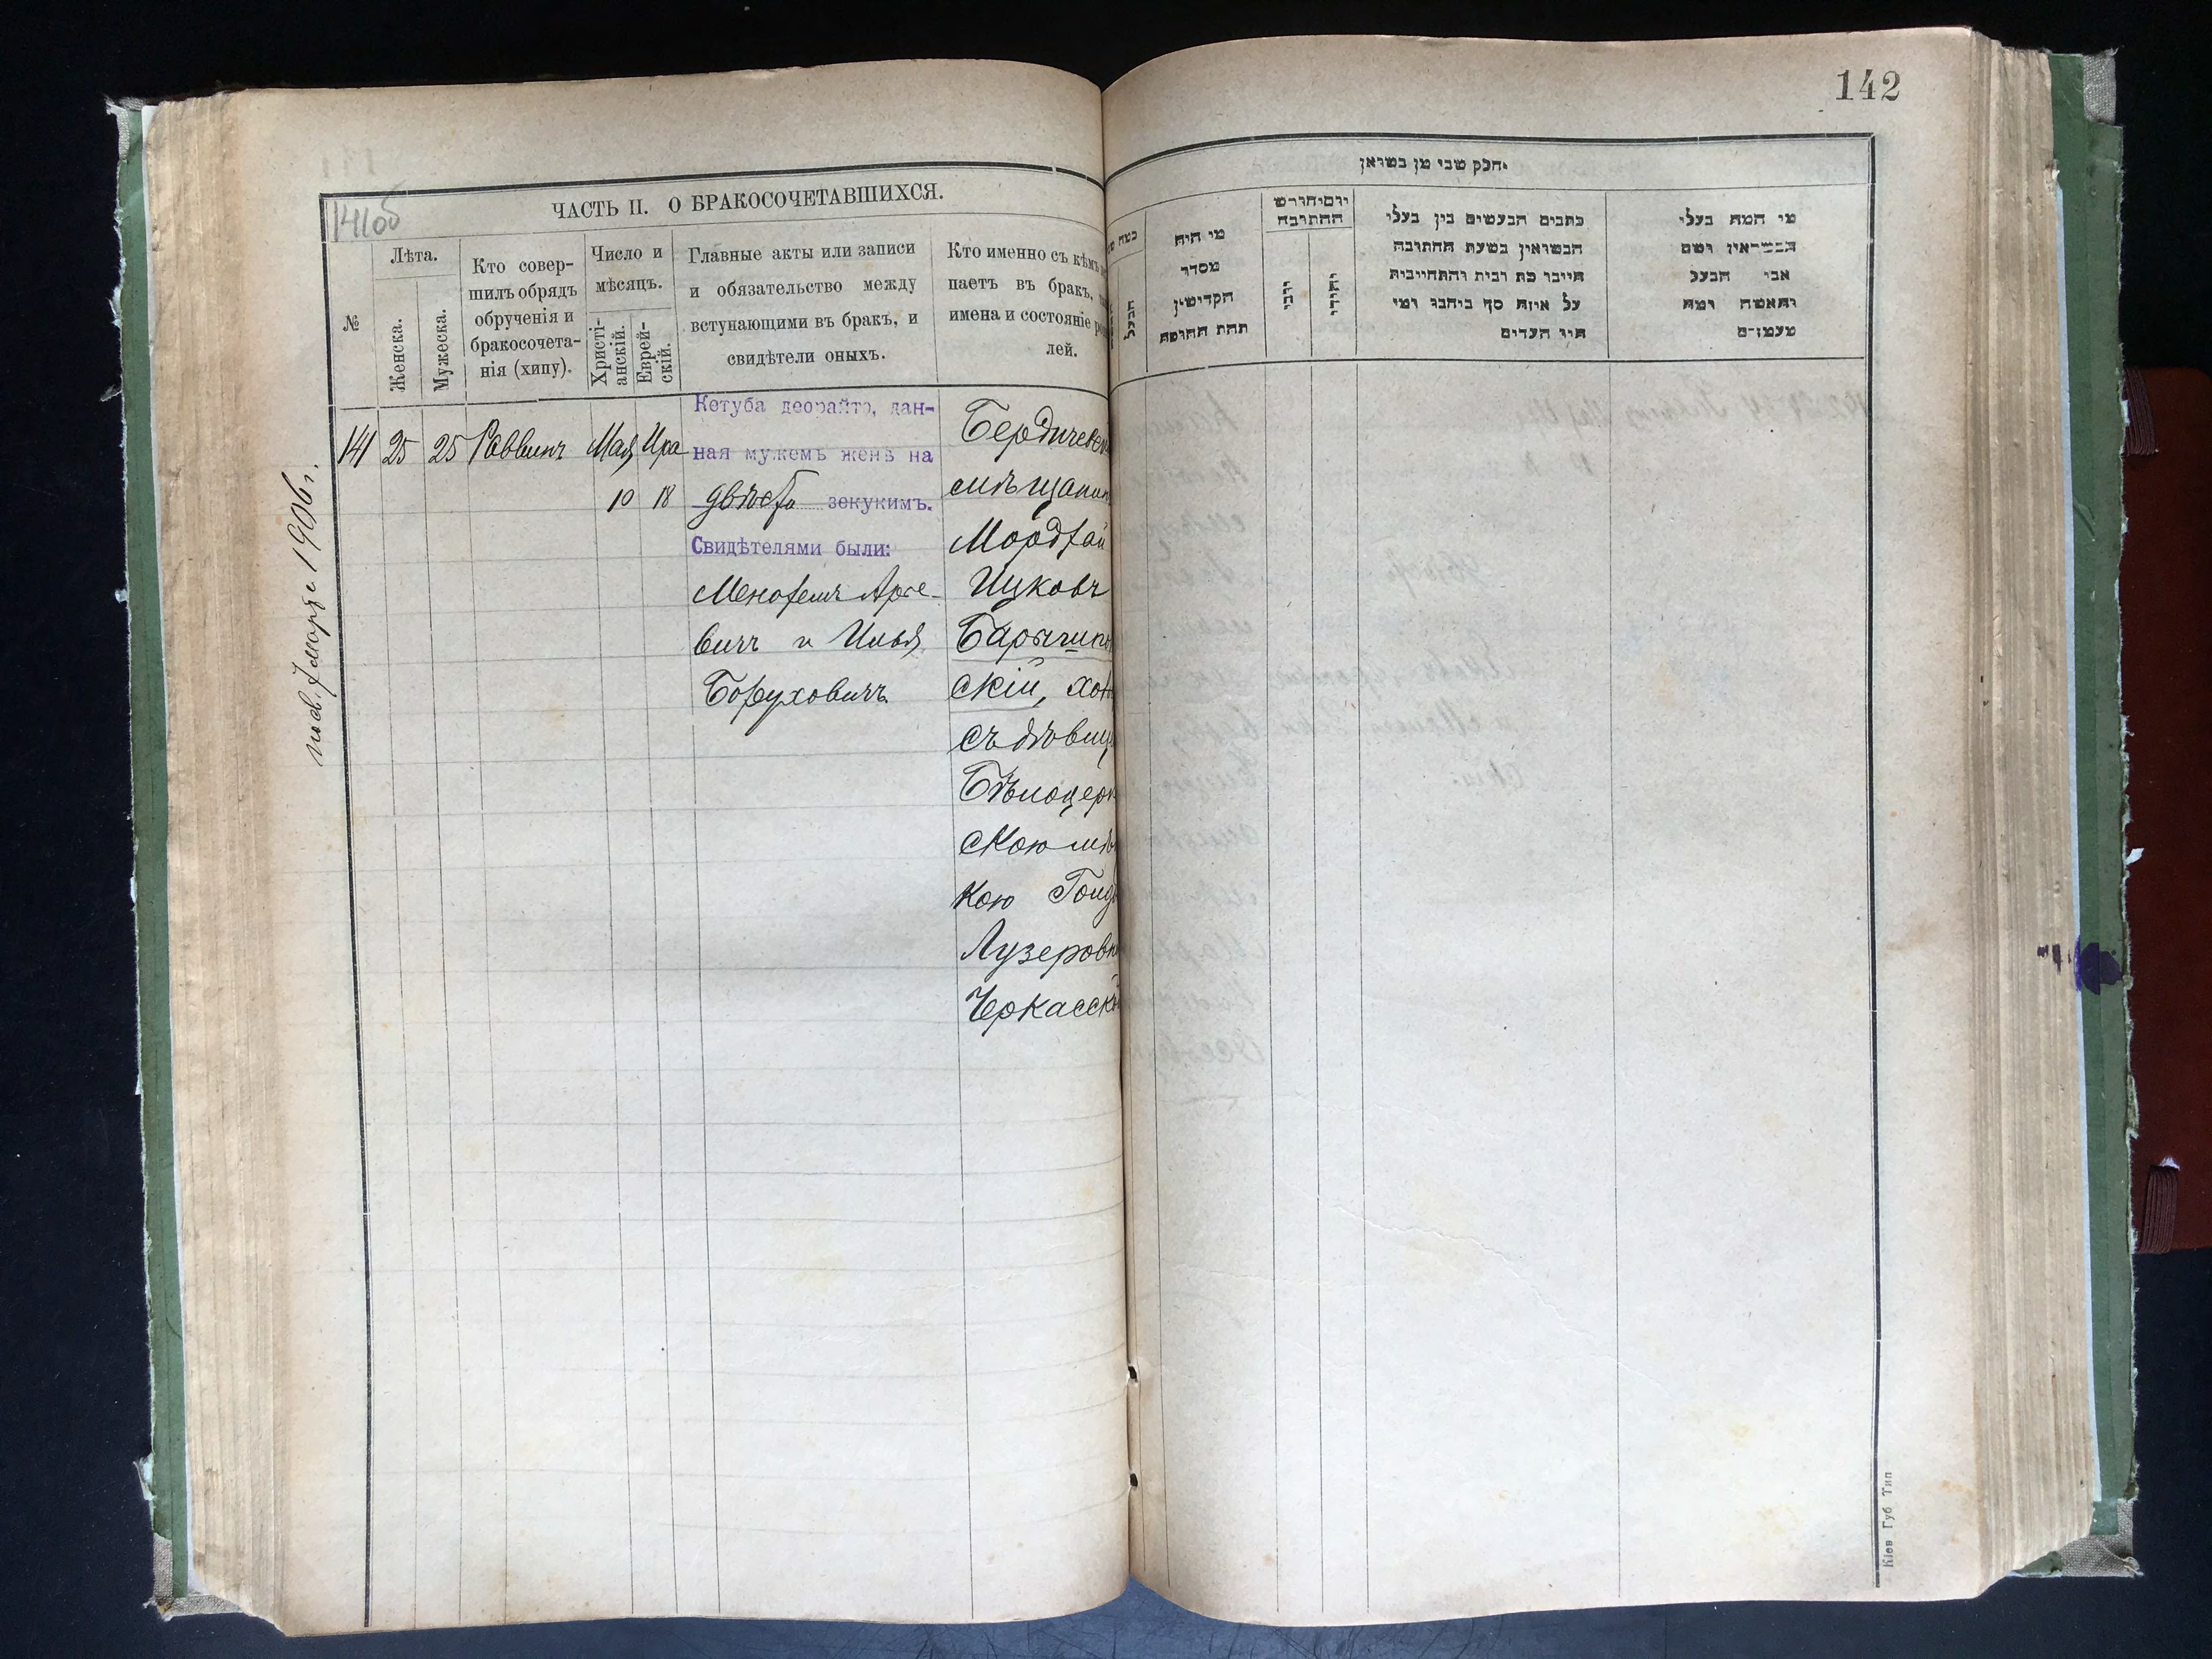 142
141об
ЧАСТЬ II. О БРАКОСОЧЕТАВШИХСЯ.
№
Лѣта.
Женска.
Мужеска.
Кто совер-
шилъ обрядъ
обрученія и
бракосочета-
нія (хипу).
Число и
мѣсяцъ.
Христі-
анскій.
Еврей-
скій.
Главные акты или записи
и обязательство между
вступающими въ бракъ, и
свидѣтели оныхъ.
Кто именно съ кѣмъ
паетъ въ бракъ,
имена и состояніе
лей.
141 25 25 Раввинъ Мая Ира
10 18
Кетуба деорайто, дан-
ная мужемъ женѣ на
двѣсти зекукимъ.
Свидѣтелями были:
вичъ и Илья
Боруховичъ
Бердичевск
мѣщанин
Мордхай
Ицковъ
скій, хол
съ дѣвиц
Бѣлоцерк
скою мѣщ
кою Голд
Лузеровн
Черкасск
1906 г.
חלק שני מן בשואן
מי היה
מסדר
הקדושין
תחת החופה
יום וחודש
החתונה
יהודי
כתבים הנעשים בין בעלי
הנשואין בשעת החתונה
על איזה סך ביחבו ומי
היו העדים
מי המה בעלי
הנשואין ושם
אבי הבעל
והאשה ומה
מעמדם
Кіев Губ Тип